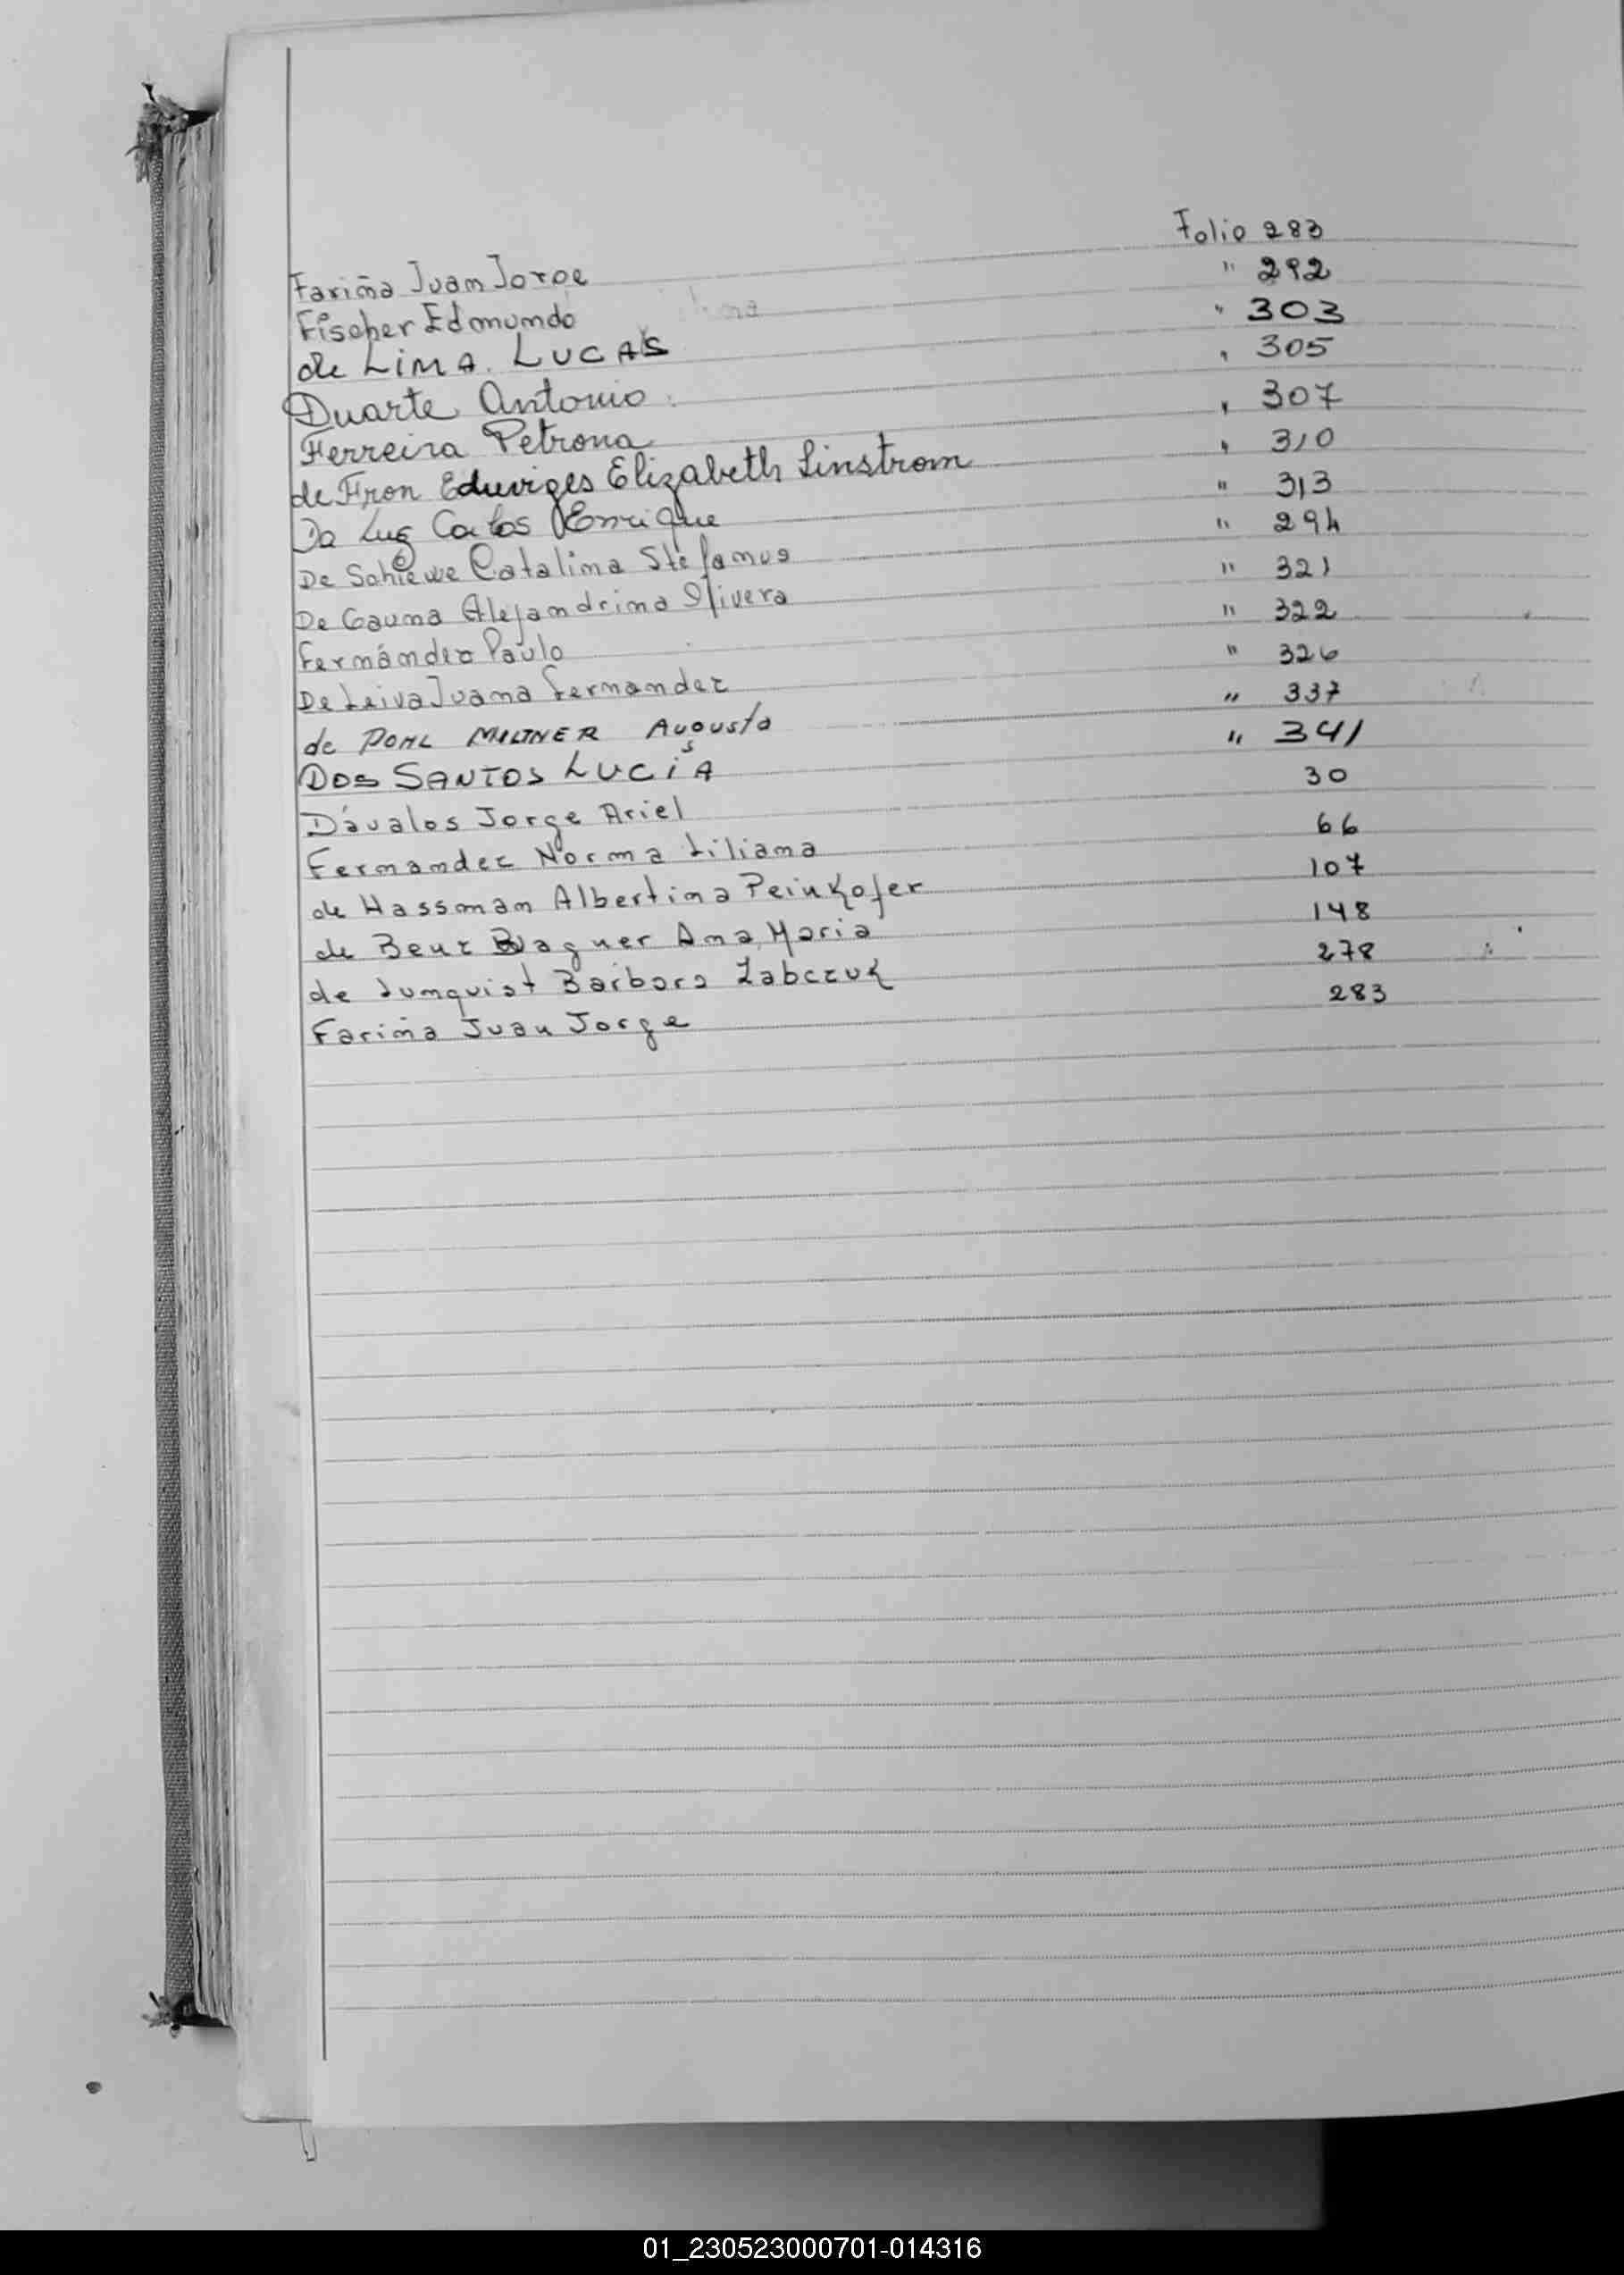 Fariña Juan Jorge Folio 283
Fischer Edmundo " 292
de LIMA. LUCAS " 303
Duarte Antonio " 305
Ferreira Petrona " 307
de Fron Eduviges Elizabeth Linstrom " 310
Da Luz Carlos Enrique " 313
De Schiewe Catalina Stefanus " 294
De Gauna Alejandrina Olivera " 321
Fernández Paulo " 322
De Leiva Juana Fernandez " 326
de POHL MILTNER Augusta " 337
DOS SANTOS LUCIA " 341
Dávalos Jorge Ariel 30
Fernandez Norma Liliana 66
de Hassman Albertina Peinkofer 107
de Benz Wagner Ana Maria 148
de Lunquist Barbara Zabczuk 278
Fariña Juan Jorge 283
01_230523000701-014316